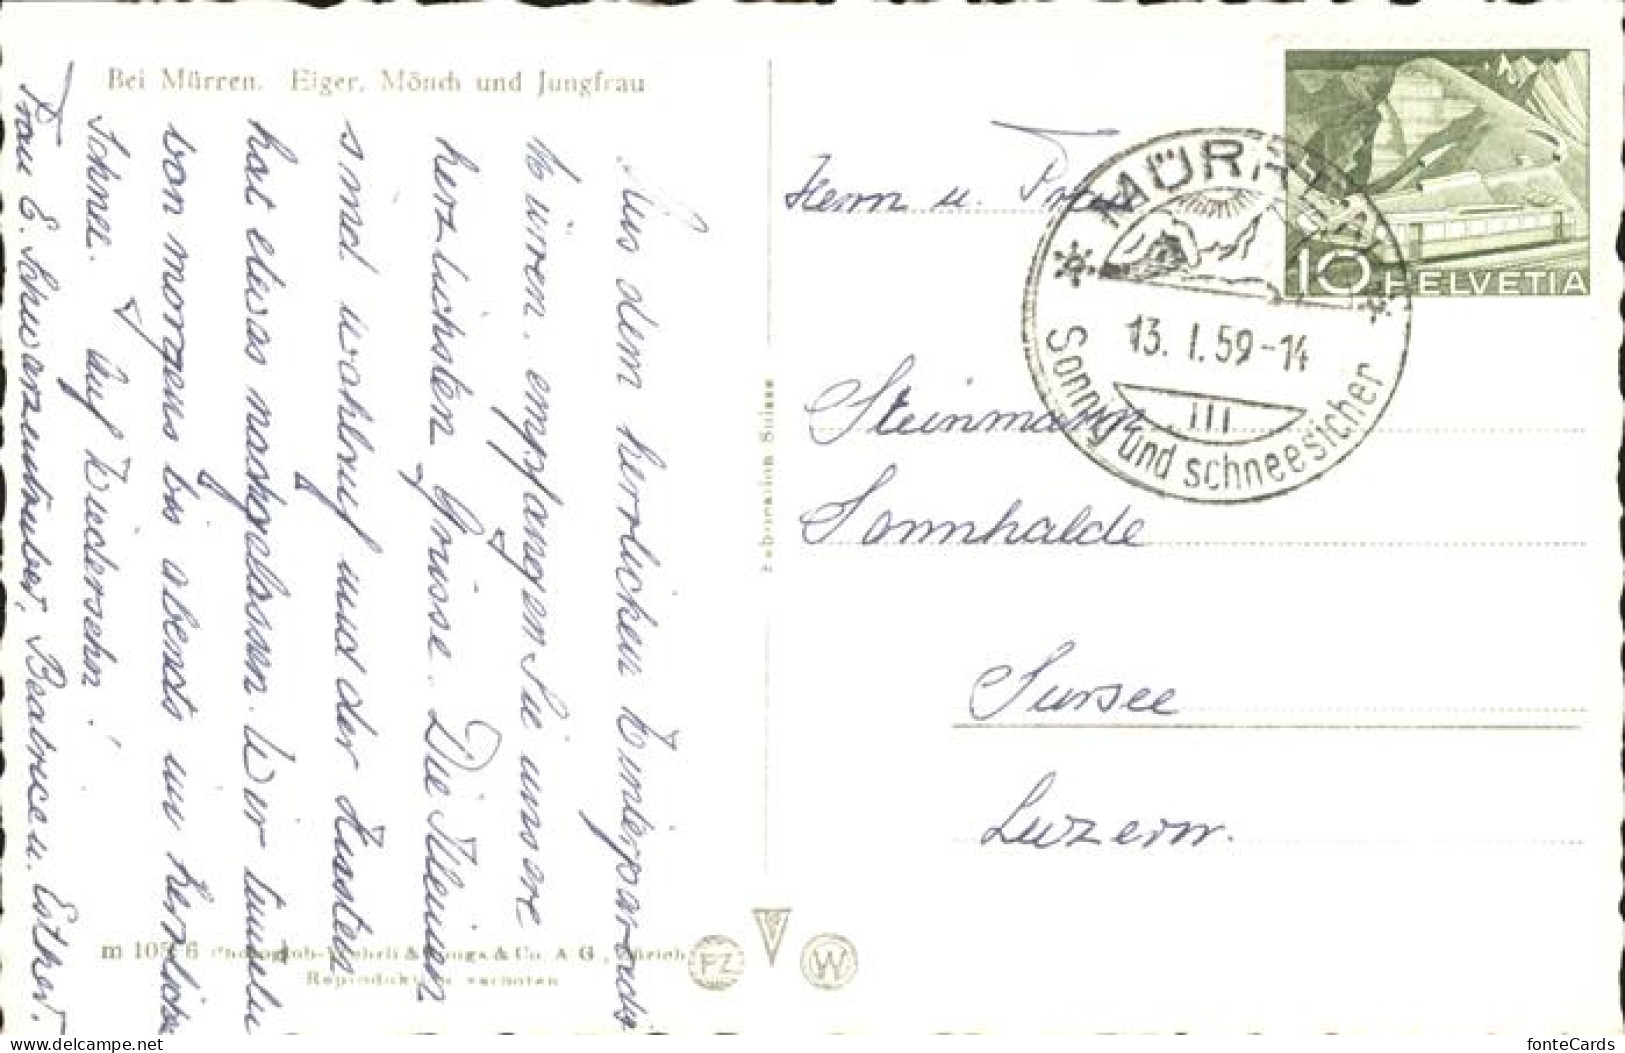 Bei Mürren. Eiger, Mönch und Jungfrau
Aus dem herrlichen Winterparadies
Mürren. empfangen Sie unsere
herzlichsten Grüsse. Die Kleinen
sind wohlauf und der Husten
hat etwas nachgelassen. Wir
von morgens bis abends im herrlichen
Schnee. Auf Wiedersehn!
Frau E. Schwarzentruber, Beatrice u. Esther.
Herrn u. Frau
Steinmann
Sonnhalde
Sursee
Luzern.
MÜRREN
13. I. 59-14
III
Sonnig und schneesicher
10 HELVETIA
Fabrication Suisse
m 105 6 Photoglob-Wehrli & Vouga & Co. A G., Zürich
Reproduktion verboten
PZ
W
https://www.delcampe.net
fonteCards